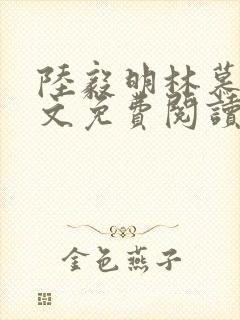 陸毅明林慕
文免費閱讀
金色燕子